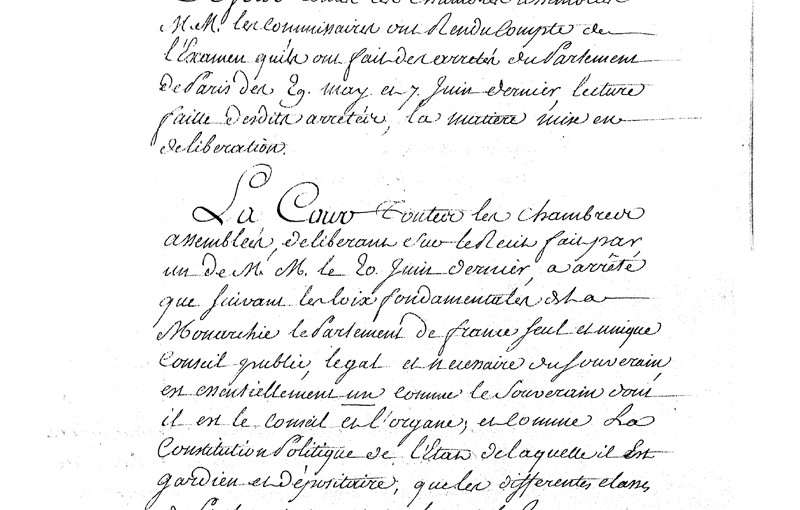 Ce jour toutes les chambres assemblées
M. M. les commissaires ont Rendu Compte de
l'Examen qu'ils ont fait des arretés du Parlement
de Paris des 29. may et 7. Juin dernier, lecture
faitte desdits arretés, la matiere mise en
deliberation.
La Cour Toutes les Chambres
assemblées, deliberant sur le Recit fait par
un de M. M. le 20. Juin dernier, a arrêté
que suivant les loix fondamentales de la
Monarchie le Parlement de france seul et unique
Conseil public, legal et necessaire du Souverain,
est essentiellement un comme le Souverain dont
il est le conseil et l'organe; et comme La
Constitution Politique de l'Etat de laquelle il Est
gardien et dépositaire, que les differentes classes